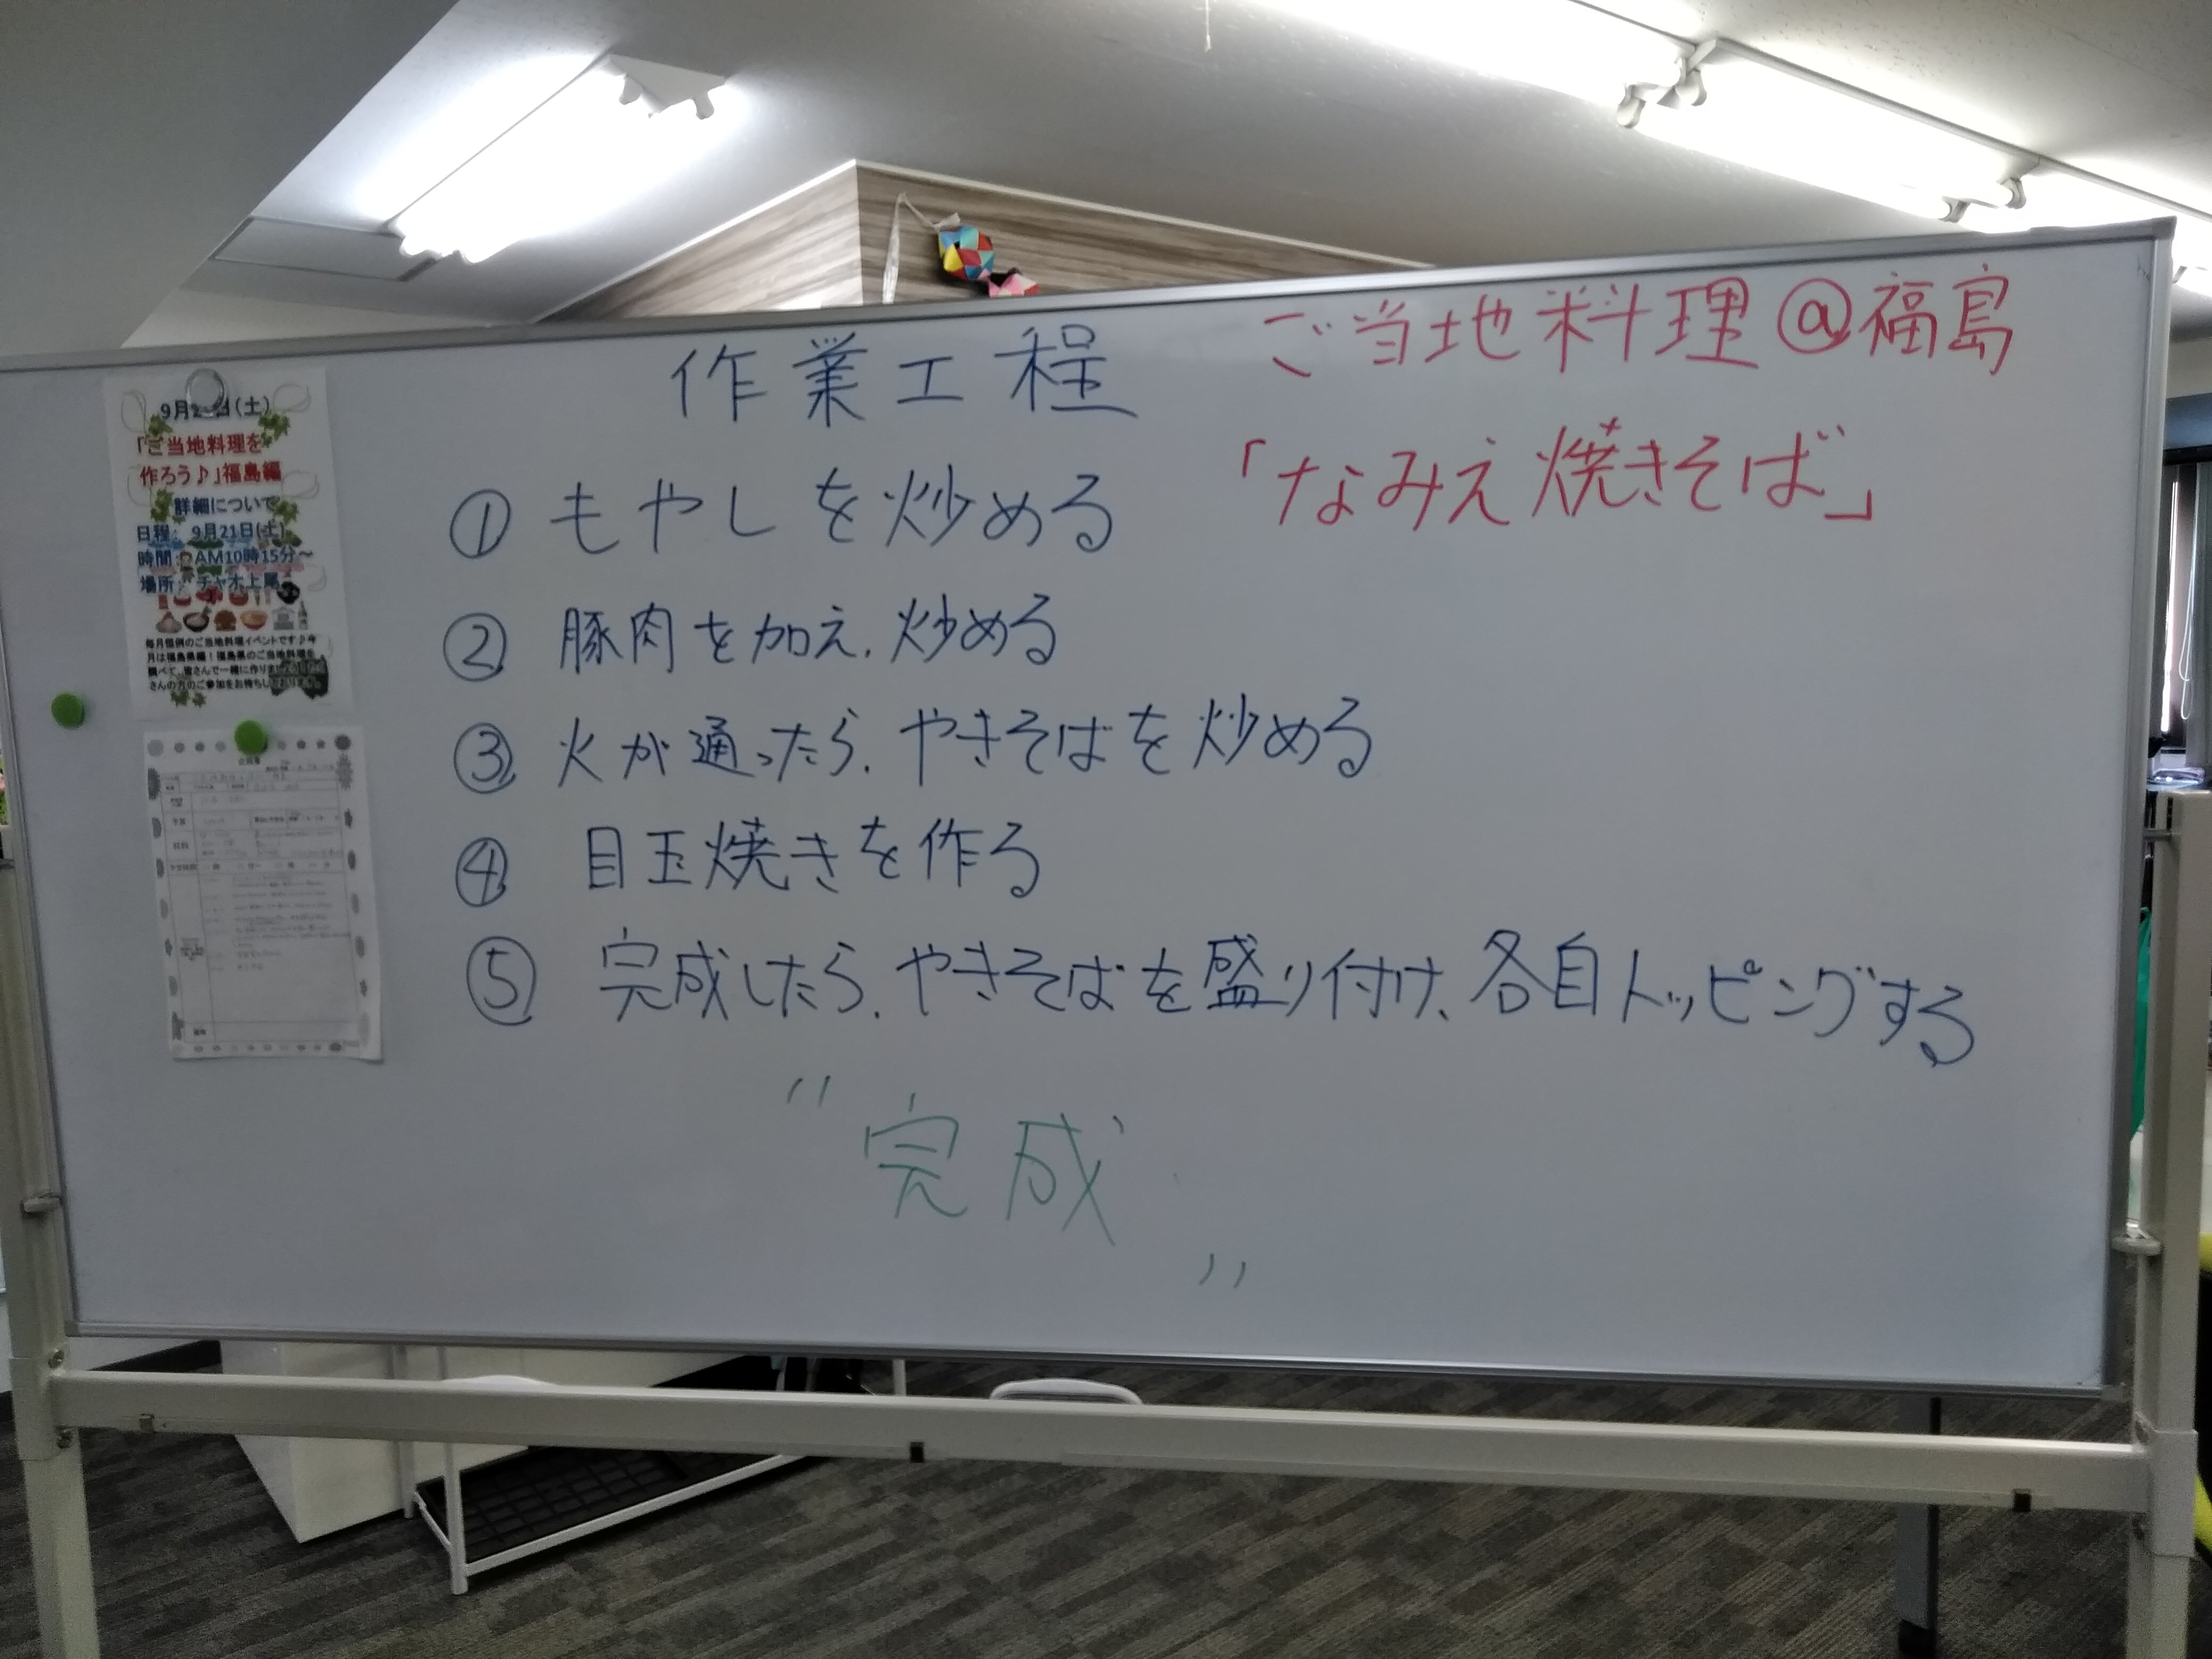 作業工程
ご当地料理@福島
「なみえ焼きそば」
① もやしを炒める
② 豚肉を加え、炒める
③ 火が通ったら、やきそばを炒める
④ 目玉焼きを作る
⑤ 完成したら、やきそばを盛り付け、各自トッピングする
〃完成〃
9月2 日(土)
「ご当地料理を
作ろう♪」福島編
詳細について
日程: 9月21日(土)
時間: AM10時15分~
場所: チャオ上尾
毎月恒例のご当地料理イベントです♪今
月は福島県編!福島県のご当地料理を
調べて、皆さんで一緒に作りま
さんの方のご参加をお待ちしております。